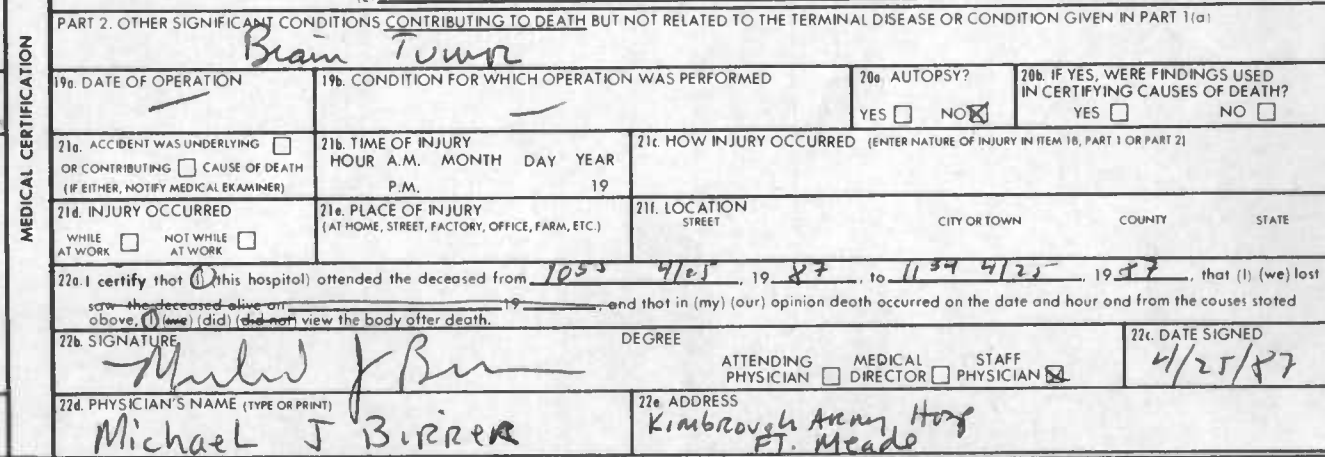 PART 2. OTHER SIGNIFICANT CONDITIONS CONTRIBUTING TO DEATH BUT NOT RELATED TO THE TERMINAL DISEASE OR CONDITION GIVEN IN PART 1(a)
Brain Tumor
MEDICAL CERTIFICATION
19a. DATE OF OPERATION
—
19b. CONDITION FOR WHICH OPERATION WAS PERFORMED
—
20a AUTOPSY?
YES ☐ NO ☒
20b. IF YES, WERE FINDINGS USED
IN CERTIFYING CAUSES OF DEATH?
YES ☐ NO ☐
21a. ACCIDENT WAS UNDERLYING ☐
OR CONTRIBUTING ☐ CAUSE OF DEATH
(IF EITHER, NOTIFY MEDICAL EXAMINER)
21b. TIME OF INJURY
HOUR A.M. MONTH DAY YEAR
P.M. 19
21c. HOW INJURY OCCURRED (ENTER NATURE OF INJURY IN ITEM 18, PART 1 OR PART 2)
21d. INJURY OCCURRED
WHILE ☐ NOT WHILE ☐
AT WORK AT WORK
21e. PLACE OF INJURY
(AT HOME, STREET, FACTORY, OFFICE, FARM, ETC.)
21f. LOCATION
STREET CITY OR TOWN COUNTY STATE
22a. I certify that (I) (this hospital) attended the deceased from 1055 4/25, 19 87, to 1134 4/25, 19 87, that (I) (we) last
saw the deceased alive on 19 , and that in (my) (our) opinion death occurred on the date and hour and from the causes stated
above, (I) (we) (did) (did not) view the body after death.
22b. SIGNATURE
DEGREE
ATTENDING MEDICAL STAFF
PHYSICIAN ☐ DIRECTOR ☐ PHYSICIAN ☒
22c. DATE SIGNED
4/25/87
22d. PHYSICIAN'S NAME (TYPE OR PRINT)
Michael J BIRRER
22e ADDRESS
Kimbrough Army Hosp
FT. Meade